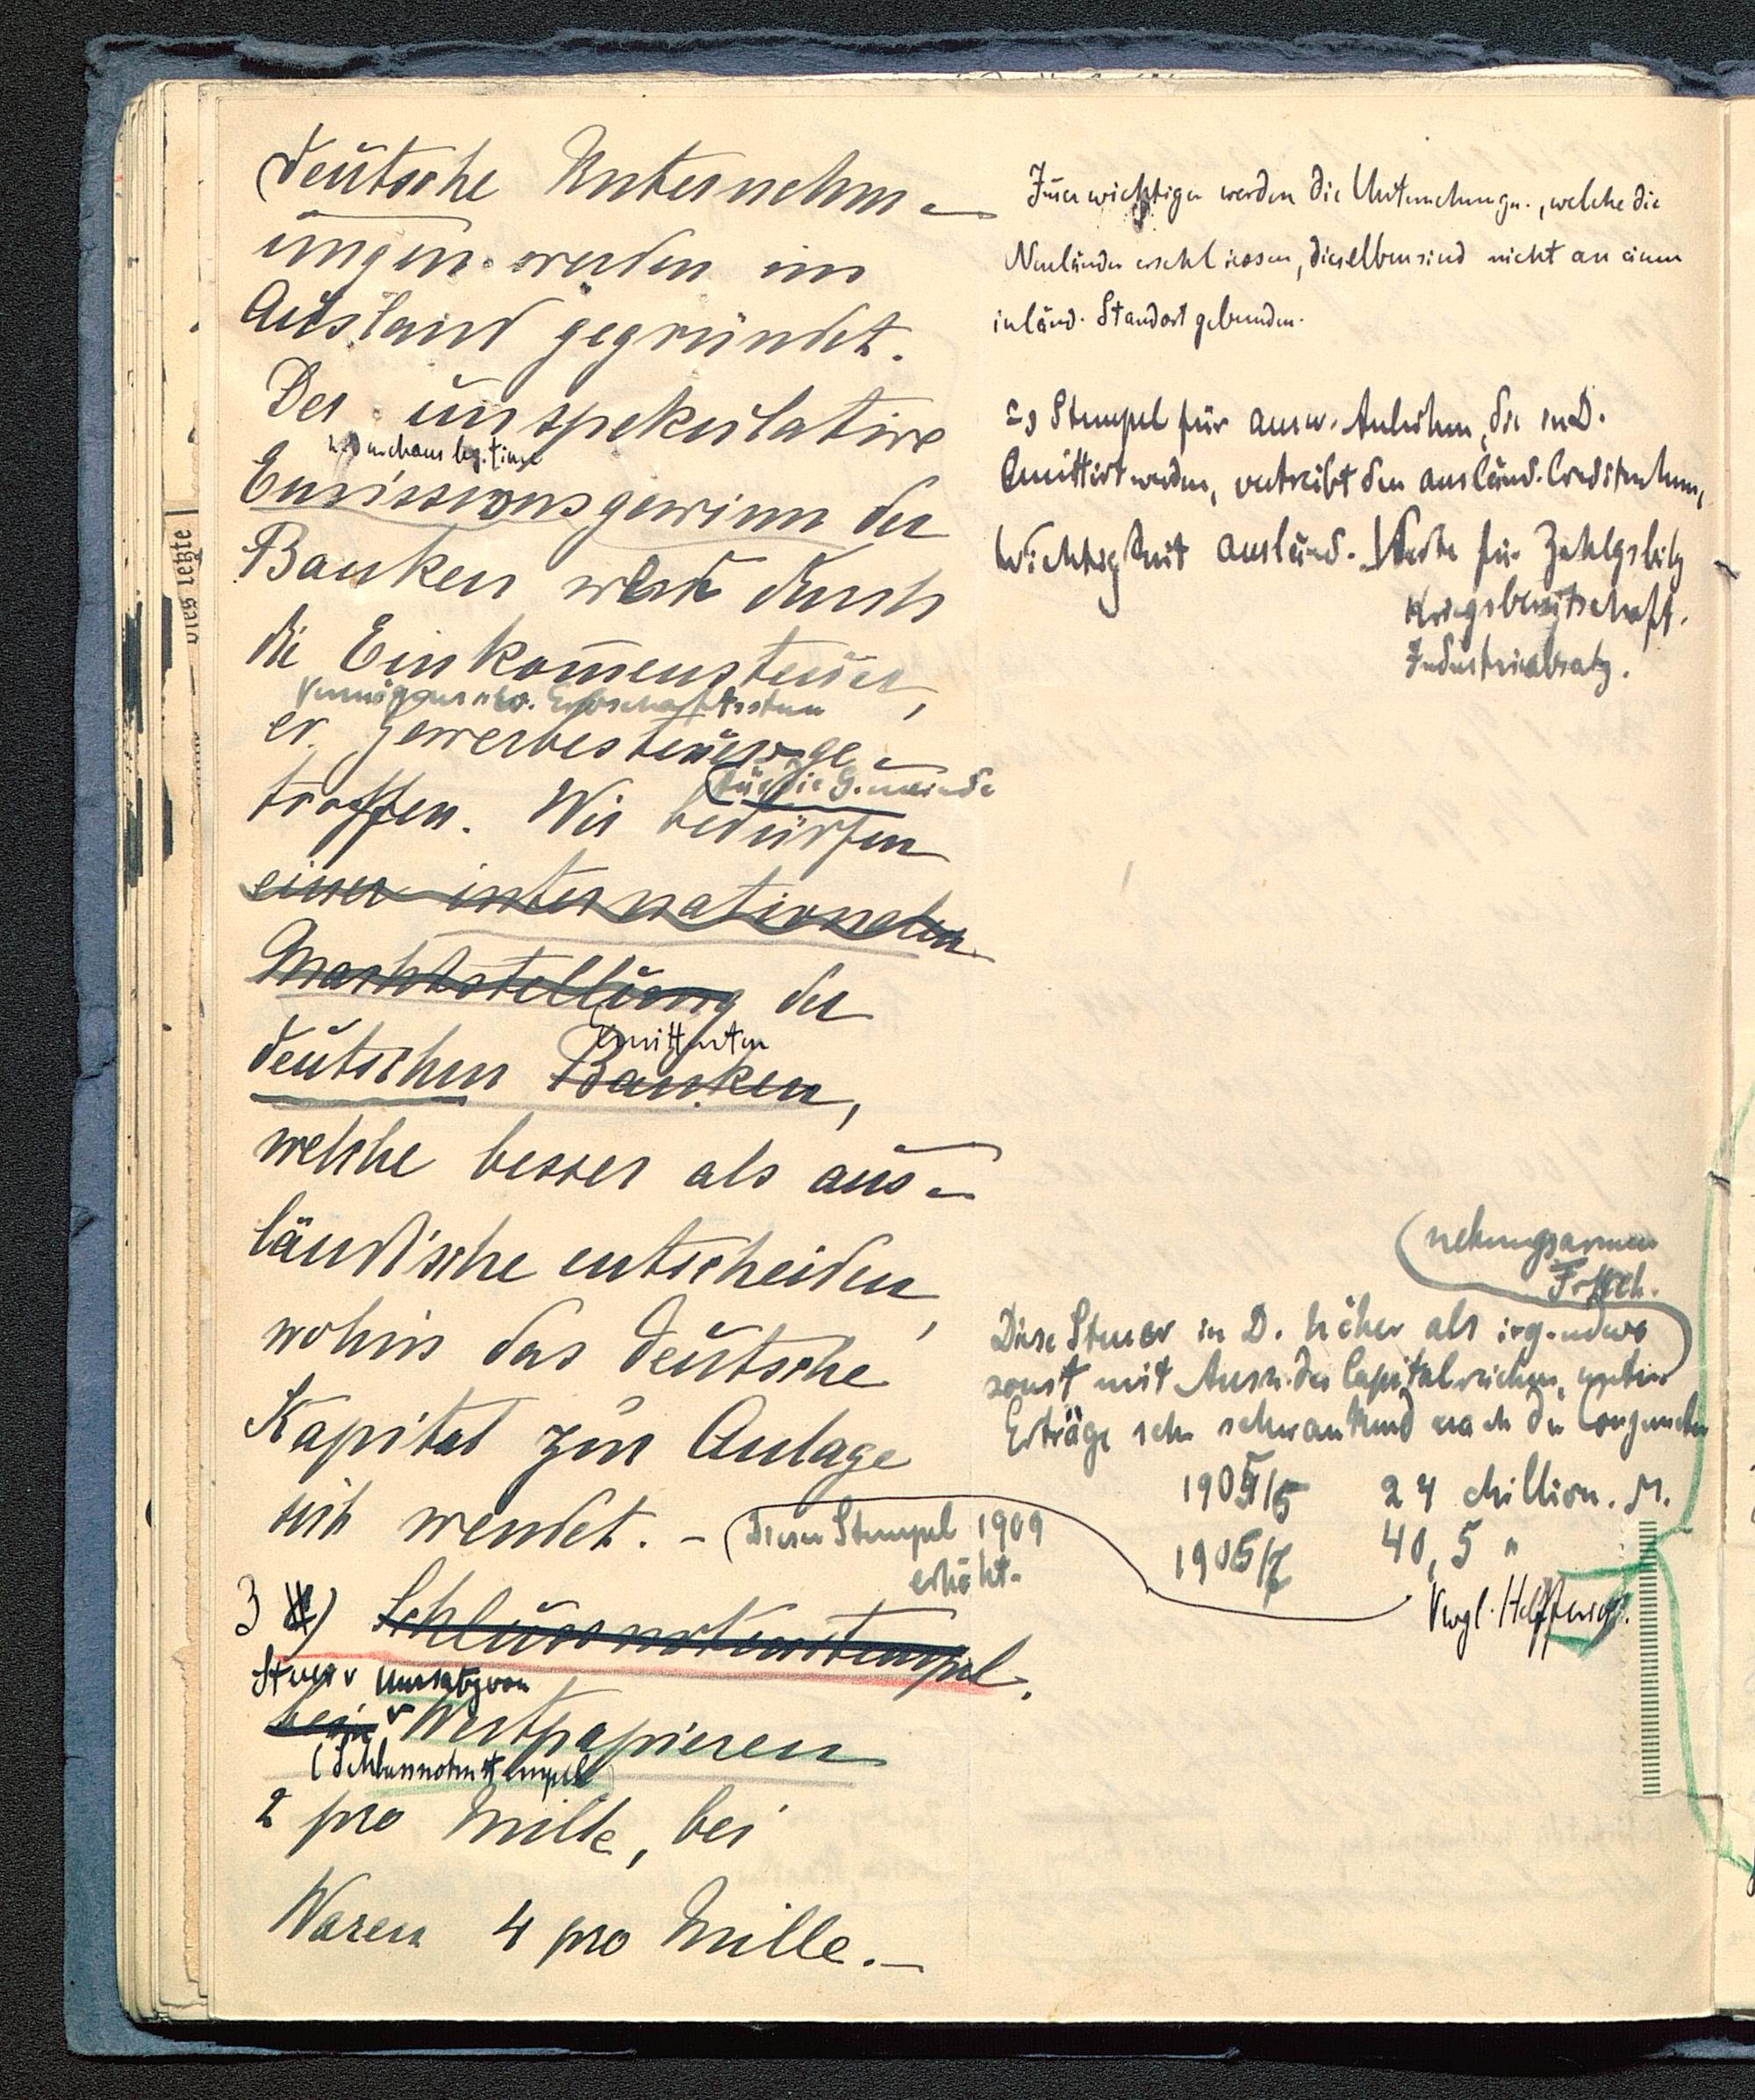 deutsche Unternehm-
ungen werden im
Ausland gegründet.
Der unspekulative
u. durchaus legitime
Emissionsgewinn der
Banken wird durch
die Einkommensteuer,
Vermögens u. Erbschaftssteuer
er gewerbesteuer ge-
troffen. Wir bedürfen
für die Gemeinde
einer internationalen
Machtstellung der
Emittenten
deutschen Banken,
welche besser als aus-
ländische entscheiden,
wohin das deutsche
Kapital zur Anlage
sich wendet. - (Dieser Stempel 1909
erhöht.
3 ) Schlussnotenstempel.
Steuer v Umsatz von
bei Wertpapieren
(Schlussnotenstempel)
2 pro Mille, bei
Waren 4 pro Mille. -
Im̄er wichtiger werden die Unternehmgn., welche die
Neuländer erschliessen, dieselben sind nicht an einen
inländ. Standort gebunden.
Stempel für ausw. Anleihen, die in D.
Emittirt werden, vertreibt den ausländ. Creditnehmer,
Wichtigkeit ausländ. Werte für Zahlgsbilz
Kriegsbereitschaft.
Industrieabsatz.
nehmungsarmen
Diese Steuer in D. höher als irgendwo
sonst mit Ausn. des Capitalreichen, unter
Erträge sehr schwankend nach der Conjunctur
1904/5 24 Million. M.
1906/7 40,5 "
Vergl. Helfferich.
dies letzte